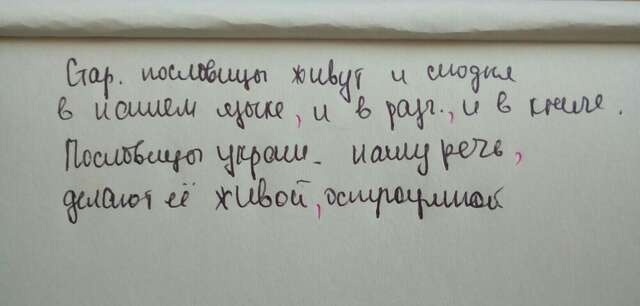 Стар. пословицы живут и сегодня
в нашем языке, и в разг., и в книге.
Пословицы украш. нашу речь,
делают её живой, остроумной